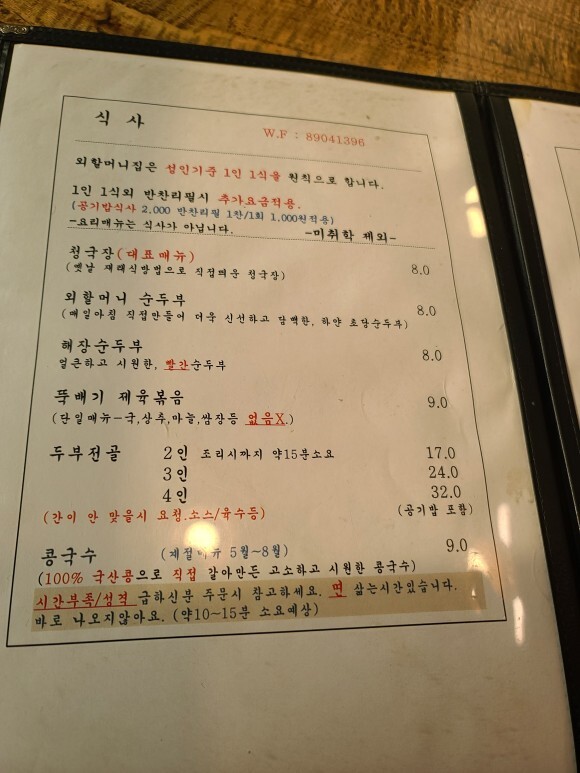 식 사
W.F : 89041396
외할머니집은 성인기준 1인 1식을 원칙으로 합니다.
1인 1식외 반찬리필시 추가요금적용.
(공기밥식사 2,000 반찬리필 1찬/1회 1,000원적용)
-요리매뉴는 식사가 아닙니다. -미취학 제외-
청국장(대표매뉴) 8.0
(옛날 재래식방법으로 직접띄운 청국장)
외할머니 순두부 8.0
(매일아침 직접만들어 더욱 신선하고 담백한, 하얀 초당순두부)
해장순두부 8.0
얼큰하고 시원한, 빨간순두부
뚝배기 제육볶음 9.0
(단일매뉴-국,상추,마늘,쌈장등 없음X.)
두부전골 2인 조리시까지 약15분소요 17.0
3인 24.0
4인 32.0
(간이 안 맞을시 요청.소스/육수등) (공기밥 포함)
콩국수 (계절매뉴 5월~8월) 9.0
(100% 국산콩으로 직접 갈아만든 고소하고 시원한 콩국수)
시간부족/성격 급하신분 주문시 참고하세요. 면 삶는시간있습니다.
바로 나오지않아요. (약10~15분 소요예상)